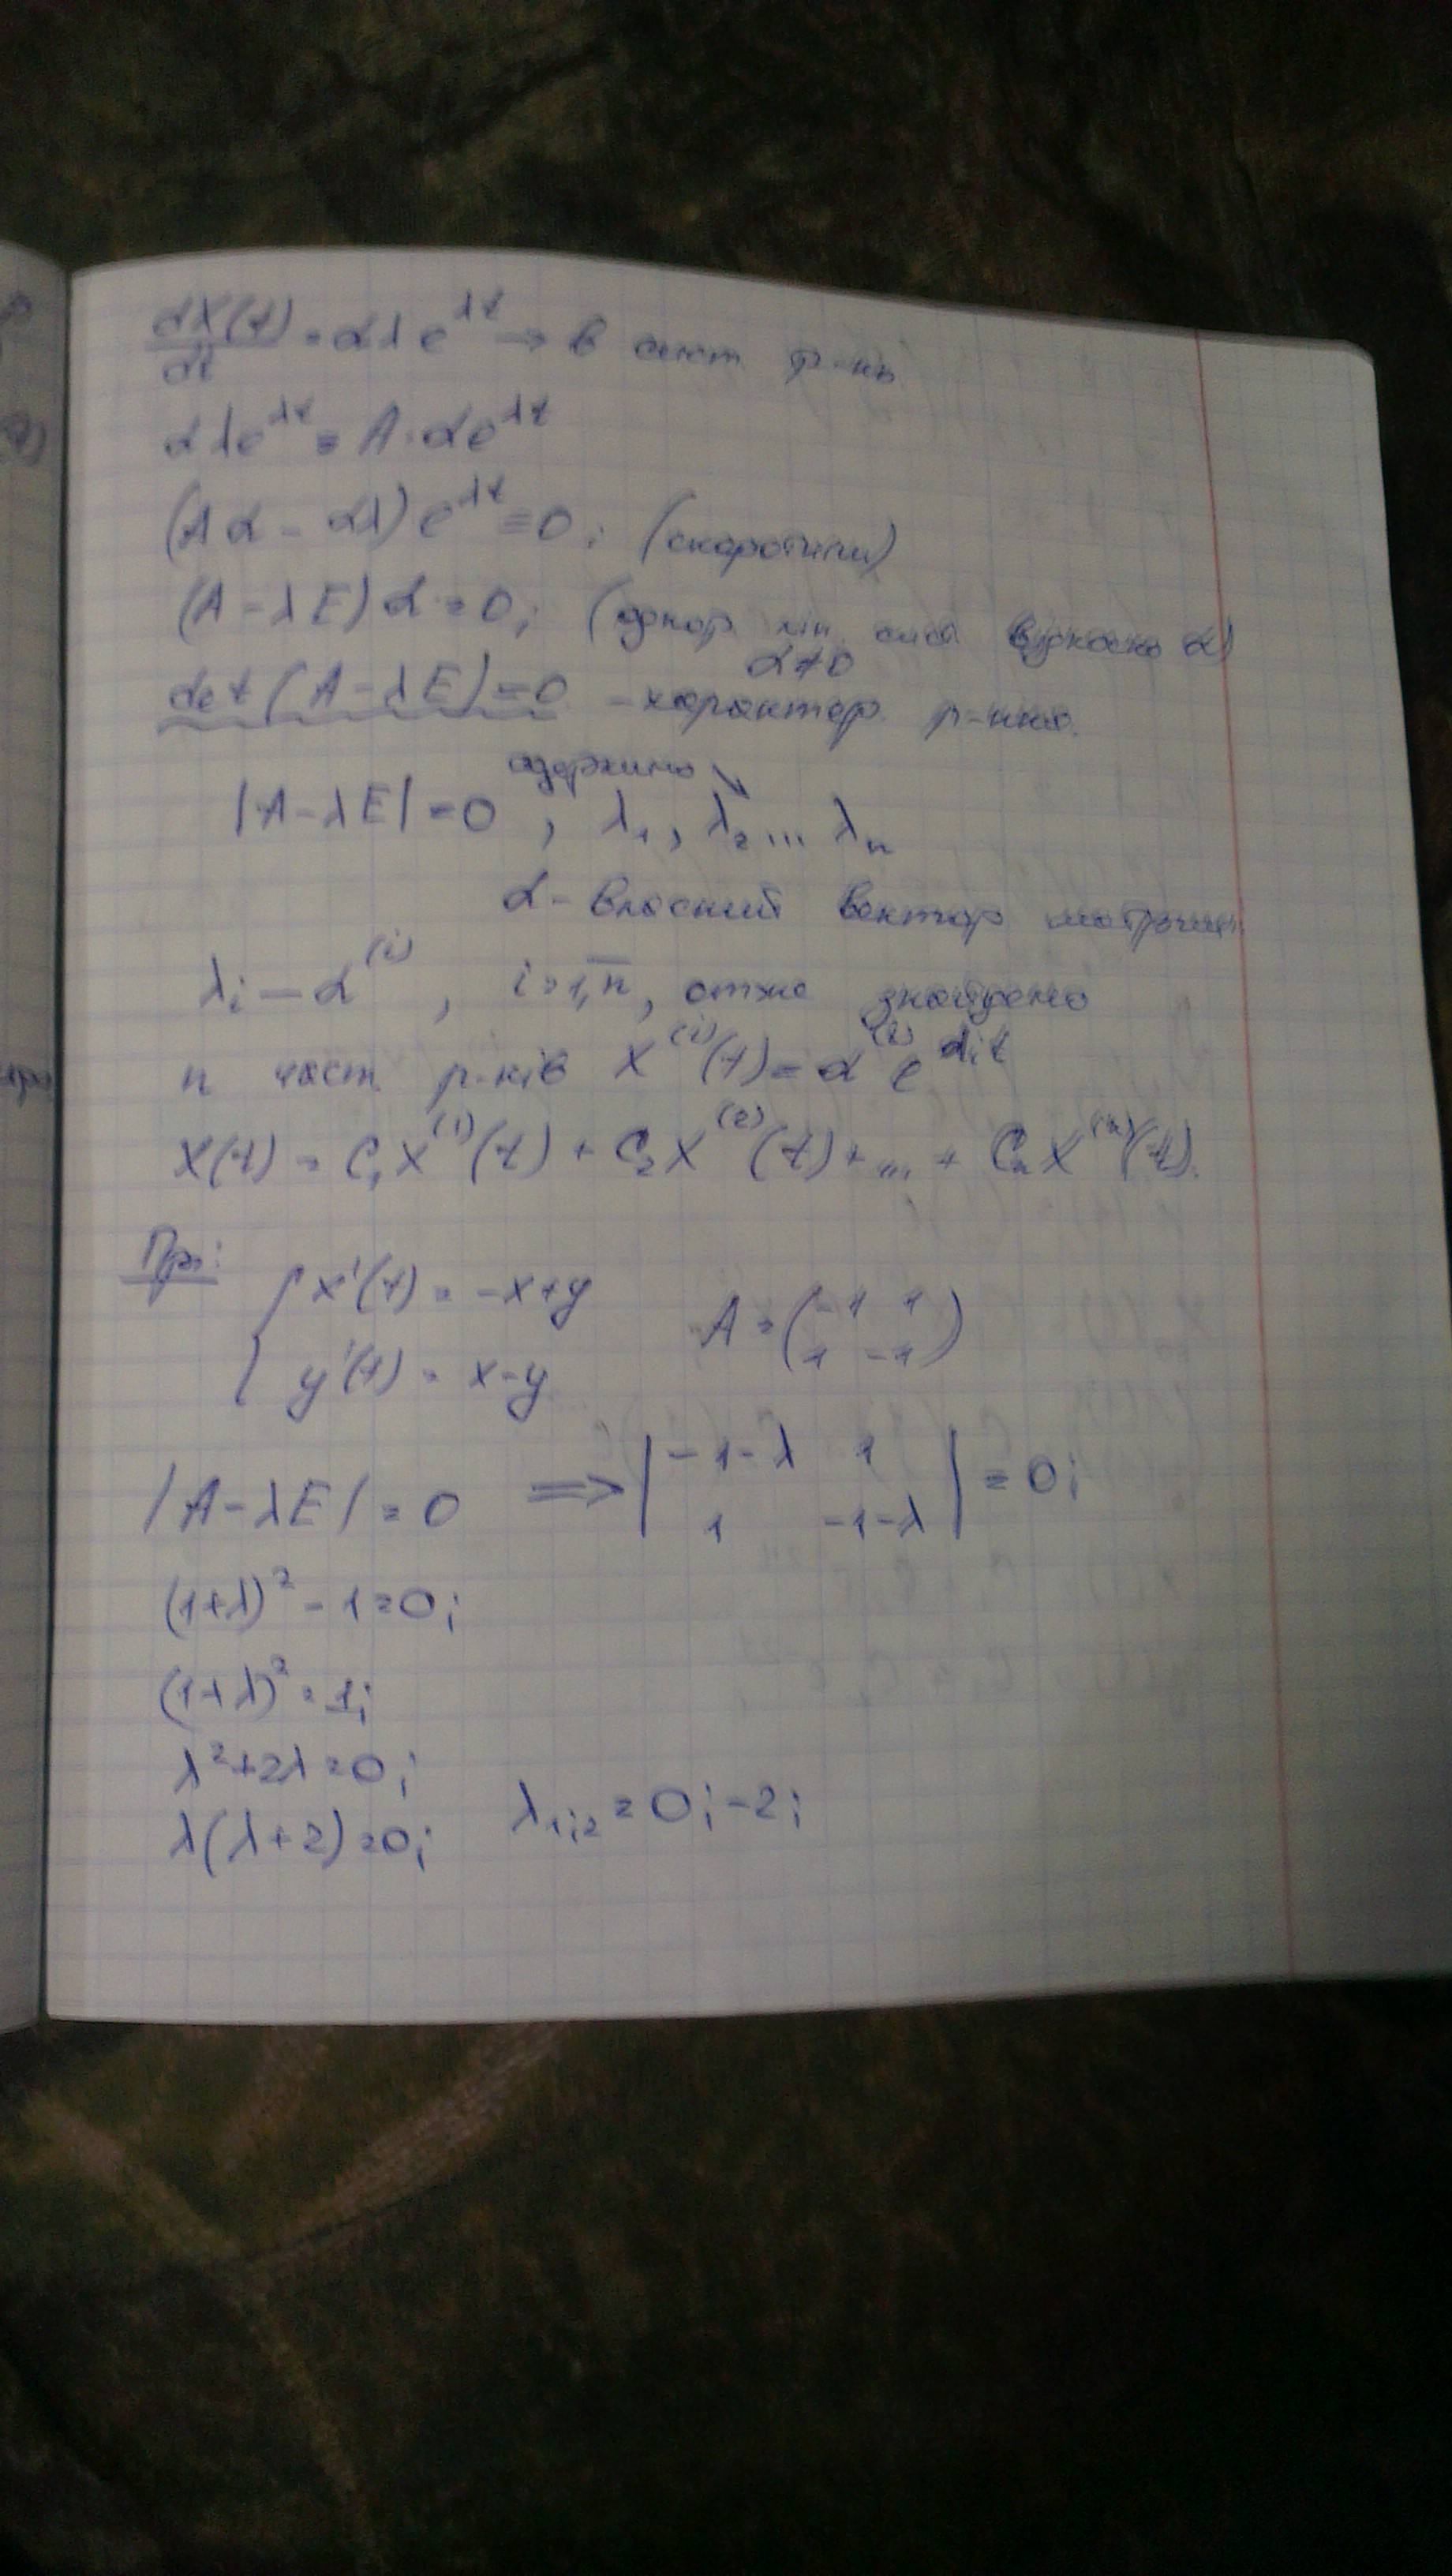 dX(t)/dt = αλe^{λt} → в сист р-нь
αλe^{λt} = A·αe^{λt}
(Aα - αλ)e^{λt} = 0; (скоротили)
(A - λE)α = 0; (однор. лін. сист відносно α)
α≠0
det(A - λE) = 0 - характер. р-ння.
одержимо ↘
|A - λE| = 0, λ₁, λ₂... λₙ
α - власний вектор матриці
λᵢ — α^{(i)}, i = 1,n̅, отже знайдено
n част. р-ків X^{(i)}(t) = α^{(i)} e^{λᵢt}
X(t) = C₁X^{(1)}(t) + C₂X^{(2)}(t) + ... + CₙX^{(n)}(t).
Пр:
{ x'(t) = -x+y
y'(t) = x-y
A = (-1 1
1 -1)
|A - λE| = 0 ⟹ |-1-λ 1
1 -1-λ| = 0;
(1+λ)² - 1 = 0;
(1+λ)² = 1;
λ² + 2λ = 0;
λ(λ+2) = 0; λ₁;₂ = 0; -2;